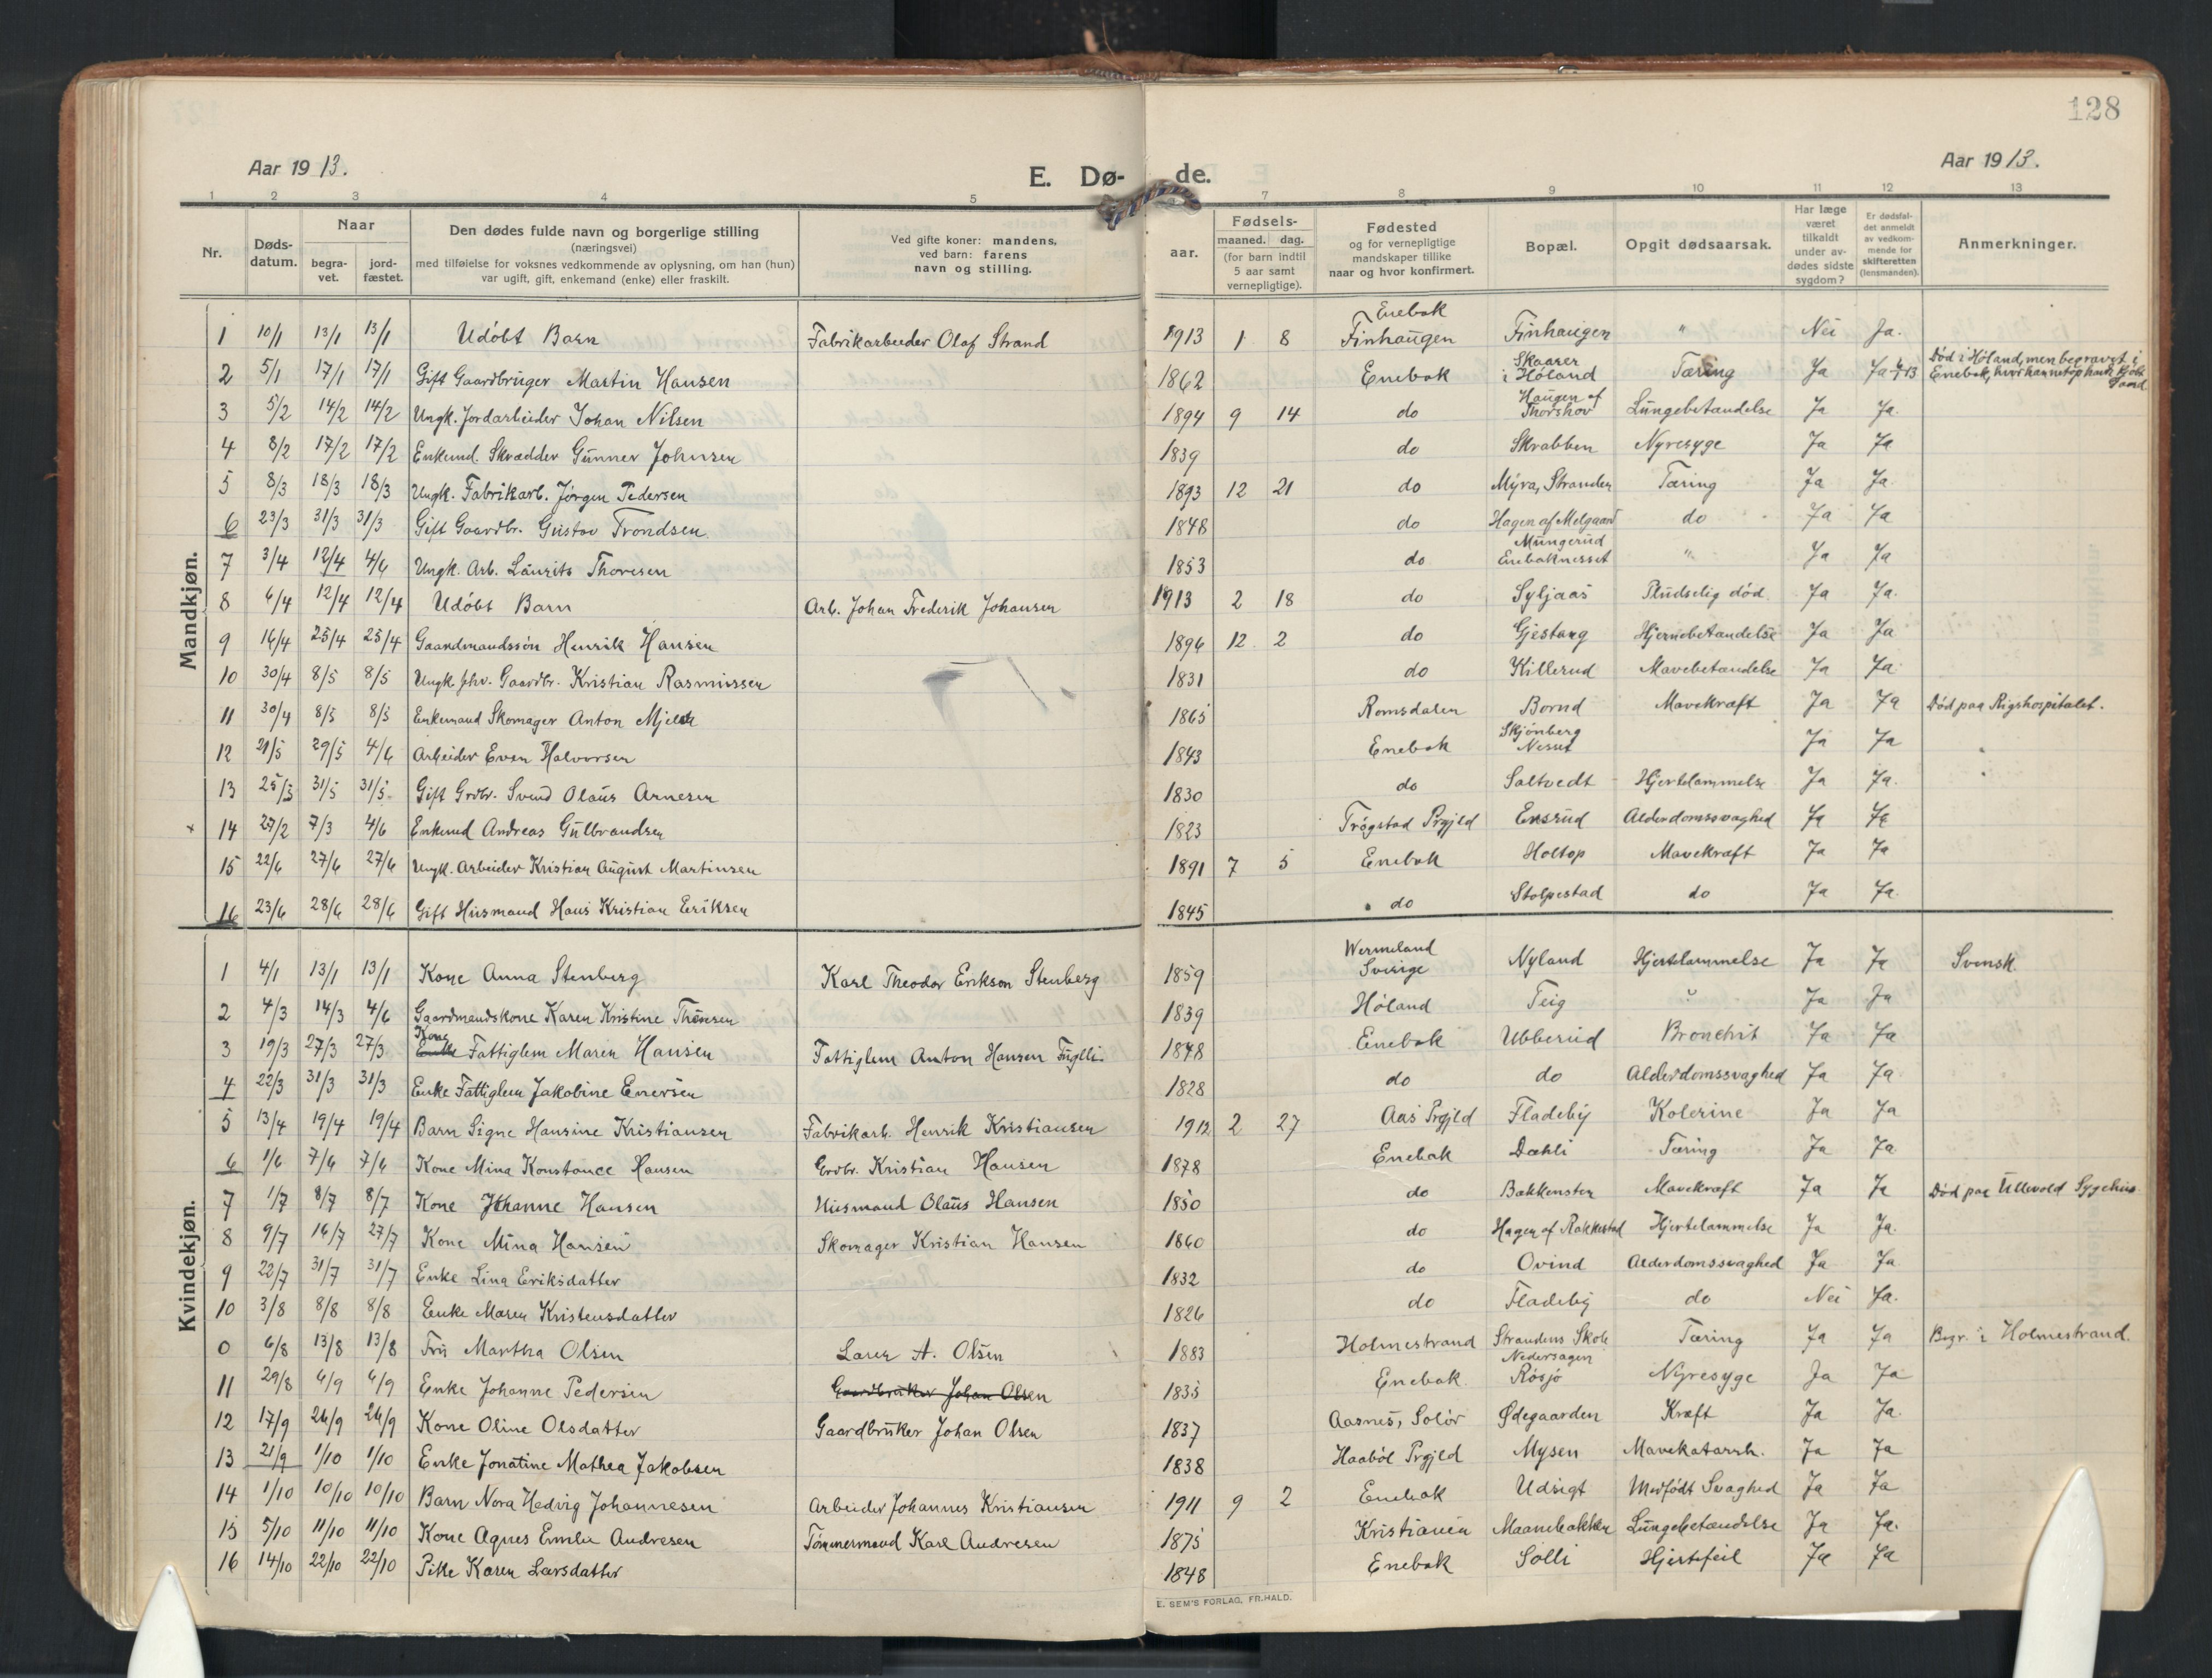 128
Aar 1913.
E. Dø- de.
Aar 1913.
1 2 3 4 5 7 8 9 10 11 12 13
Nr. Døds-datum. Naar begra-vet. jord-fæstet. Den dødes fulde navn og borgerlige stilling (næringsvei) med tilføielse for voksnes vedkommende av oplysning, om han (hun) var ugift, gift, enkemand (enke) eller fraskilt. Ved gifte koner: mandens, ved barn: farens navn og stilling. aar. Fødsels- maaned. dag. (for barn indtil 5 aar samt vernepligtige). Fødested og for vernepligtige mandskaper tillike naar og hvor konfirmert. Bopæl. Opgit dødsaarsak. Har læge været tilkaldt under av-dødes sidste sygdom? Er dødsfal-det anmeldt av vedkom-mende for skifteretten (lensmanden). Anmerkninger.
Mandkjøn.
1 10/1 13/1 13/1 Udöbt Barn Fabrikarbeider Olaf Strand 1913 1 8 Enebak Finhaugen Finhaugen " Nei Ja.
2 5/1 17/1 17/1 Gift Gaardbruger Martin Hansen 1862 Enebak Skaarer i Höland Tæring Ja Ja Död i Höland, men begravet i Enebak, hvor han netop havde kjöbt Gaard
3 5/2 14/2 14/2 Ungk. Jordarbeider Johan Nilsen 1894 9 14 do Haugen af Thorshov Lungebetændelse Ja Ja.
4 8/2 17/2 17/2 Enkemd. Skrædder Gunner Johnsen 1839 do Skrabben Nyresyge Ja Ja
5 8/3 18/3 18/3 Ungk. Fabrikarb. Jörgen Pedersen 1893 12 21 do Myra, Stranden Tæring Ja Ja.
6 23/3 31/3 31/3 Gift Gaardbr. Gustav Trondsen. 1848 do Hagen af Melgaard do Ja Ja
7 3/4 12/4 4/6 Ungk. Arb. Laurits Thoresen 1853 do Mungerud Enebaknesset " Ja Ja
8 6/4 12/4 12/4 Udöbt Barn Arb. Johan Frederik Johansen 1913 2 18 do Syljaas Pludselig död. Ja Ja.
9 16/4 25/4 25/4 Gaardmandssön Henrik Hansen 1896 12 2 do Gjestang Hjernebetændelse Ja Ja
10 30/4 8/5 8/5 Ungk. fhv. Gaardbr. Kristian Rasmussen 1831 do Killerud Mavebetændelse Ja Ja
11 30/4 8/5 8/5 Enkemand Skomager Anton 1865 Romsdalen Mavekræft Ja Ja Död paa Rigshospitalet.
12 21/5 29/5 4/6 Arbeider Even Halvorsen 1843 Enebak Skjönberg Nesset Ja Ja
13 25/5 31/5 31/5 Gift Grdbr. Svend Olaus Arnesen 1830 do Saltvedt Hjertelammelse Ja Ja.
+ 14 27/2 7/3 4/6 Enkemd Andreas Gulbrandsen 1823 Trögstad Prgjeld Ensrud Alderdomssvaghed Ja Ja
15 22/6 27/6 27/6 Ungk. Arbeider Kristian August Martinsen 1891 7 5 Enebak Holtop Mavekræft Ja Ja
16 23/6 28/6 28/6 Gift Husmand Hans Kristian Eriksen 1845 do Stolpestad do Ja Ja.
Kvindekjøn.
1 4/1 13/1 13/1 Kone Anna Stenberg Karl Theodor Erikson Stenberg 1859 Wermeland Sverige Nyland Hjertelammelse Ja Ja Svensk.
2 4/3 14/3 4/6 Gaardmandskone Karen Kristine Thoresen 1839 Höland Teig " Ja Ja
3 19/3 27/3 27/3 Kone Fattiglem Maren Hansen Fattiglem Anton Hansen 1848 Enebak Ubberud Bronchit Ja Ja
4 22/3 31/3 31/3 Enke Fattiglem Jakobine Enersen 1828 do do Alderdomssvaghed Ja Ja
5 13/4 19/4 19/4 Barn Signe Hansine Kristiansen Fabrikarb. Henrik Kristiansen 1912 2 27 Aas Prgjld Fladeby Kolerine Ja Ja
6 1/6 7/6 7/6 Kone Mina Konstance Hansen Grdbr. Kristian Hansen 1878 Enebak Dæhli Tæring Ja Ja
7 1/7 8/7 8/7 Kone Johanne Hansen Husmand Olaus Hansen 1850 do Bakkensten Mavekræft Ja Ja Död paa Ullevold Sygehus.
8 9/7 16/7 27/7 Kone Mina Hansen Skomager Kristian Hansen 1860 do Hagen af Rakkestad Hjertelammelse Ja Ja.
9 22/7 31/7 31/7 Enke Lina Eriksdatter 1832 do Ovind Alderdomssvaghed Ja Ja
10 3/8 8/8 8/8 Enke Maren Kristensdatter 1826 do Fladeby do Nei Ja.
0 6/8 13/8 13/8 Fru Martha Olsen Lærer A. Olsen 1883 Holmestrand Strandens Skole Tæring Ja Ja Begr. i Holmestrand.
11 29/8 6/9 6/9 Enke Johanne Pedersen Gaardbruker Johan Olsen 1835 Enebak. Nedersagen Rösjö Nyresyge Ja Ja
12 17/9 26/9 26/9 Kone Oline Olsdatter Gaardbruker Johan Olsen 1837 Aasnes, Solör Ødegaarden Kræft Ja Ja.
13 21/9 1/10 1/10 Enke Jonatine Mathea Jakobsen 1838 Haaböl Prgjeld Mysen Mavekatarrh. Ja Ja
14 1/10 10/10 10/10 Barn Nora Hedvig Johannesen Arbeider Johannes Kristiansen 1911 9 2 Enebak Udsigt Medfödt Svaghed Ja Ja
15 5/10 11/10 11/10 Kone Agnes Emilie Andresen Tömmermand Karl Andresen 1875 Kristiania Maanebakken Lungebetændelse Ja Ja.
16 14/10 22/10 22/10 Pike Karen Larsdatter 1848 Enebak Solli Hjertefeil Ja Ja
E. SEM'S FORLAG, FR.HALD.